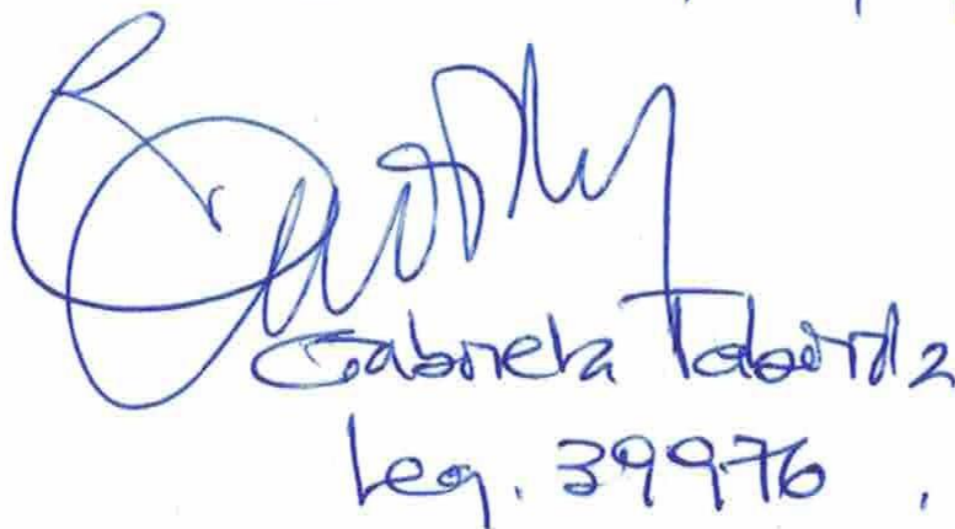 Gabriela Taborda
Leg. 39976